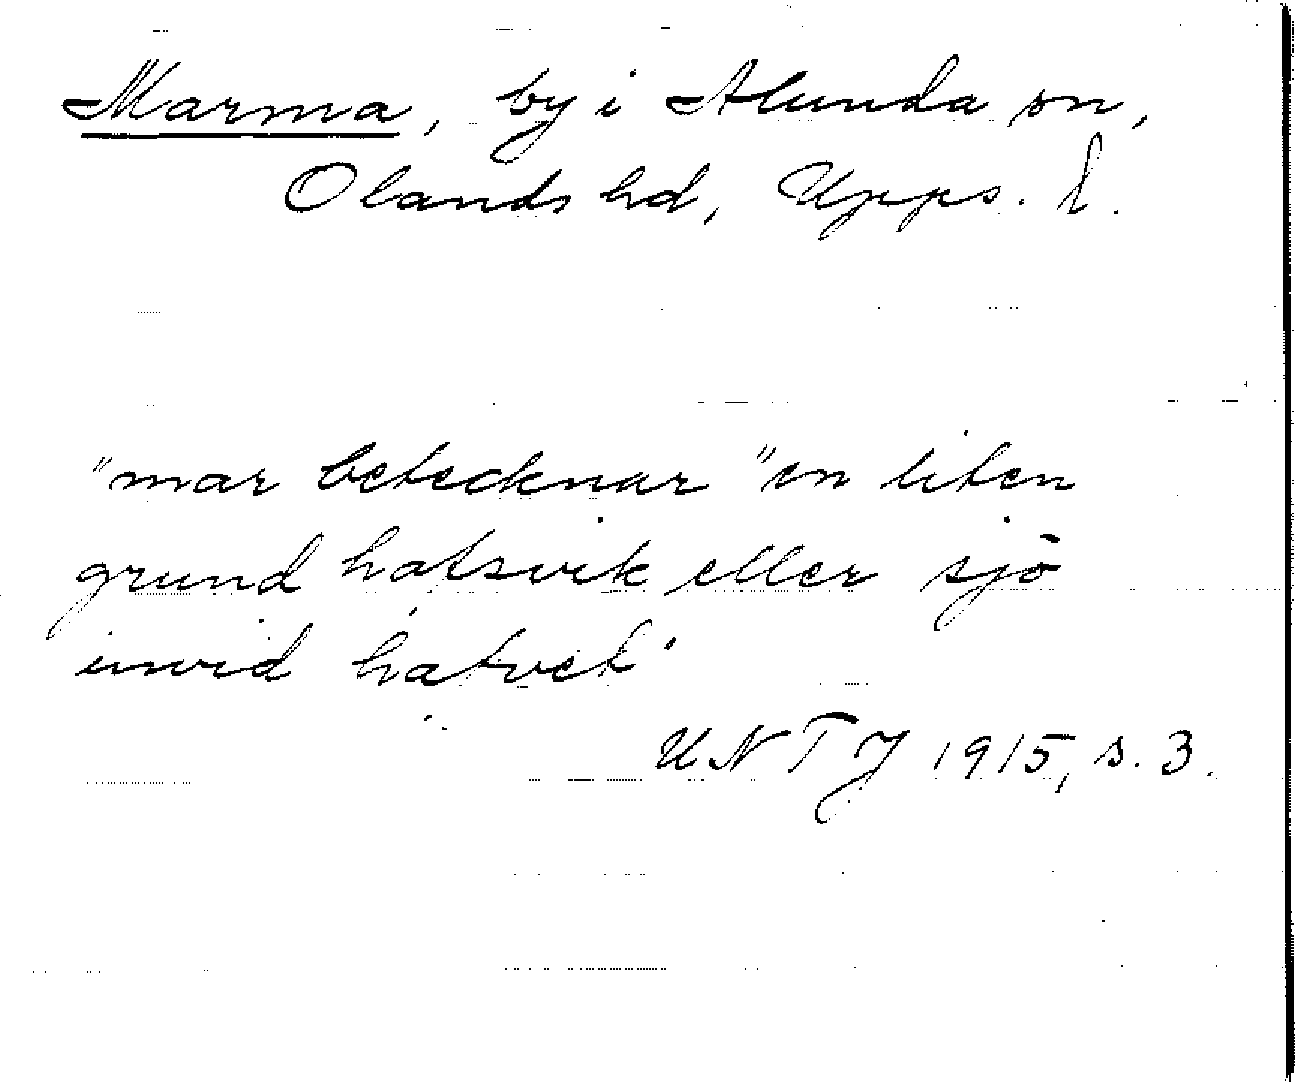 Marma, by i Alunda sn,
Olands hd, Upps. l.
"mar betecknar "en liten
grund hafsvik eller sjö
invid hafvet"
UNTJ 1915, s. 3.